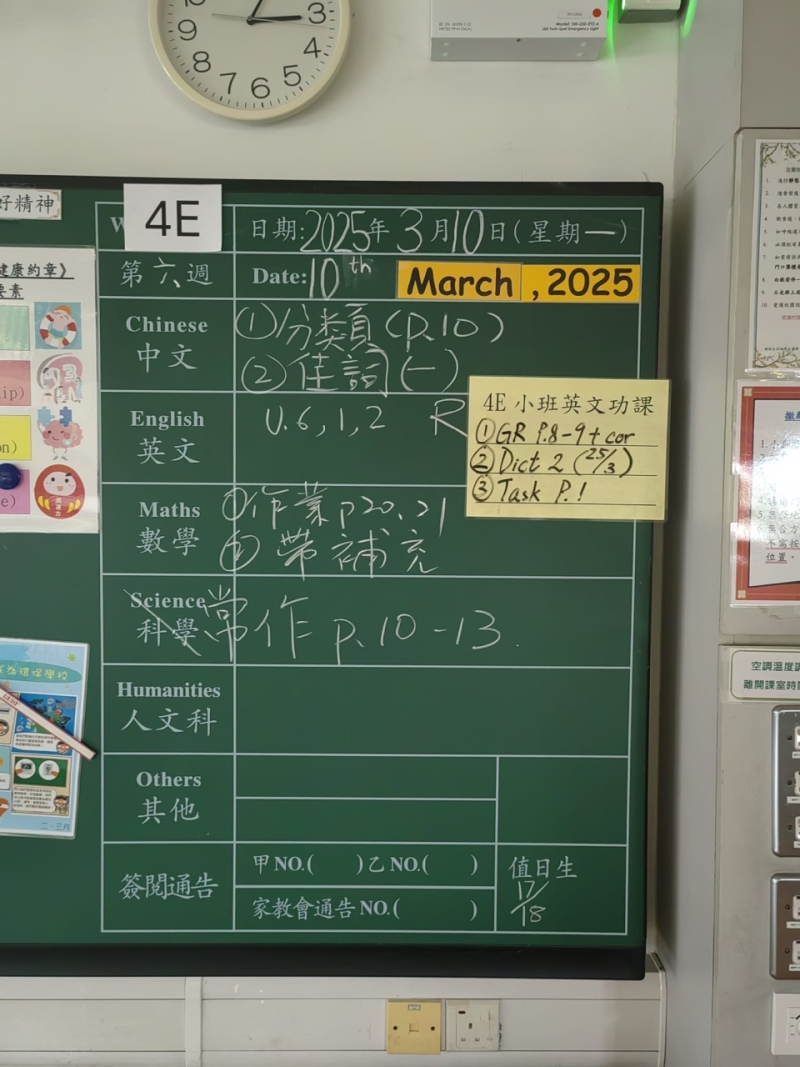 9 3
8 4
7 6 5
好精神
4E
日期:2025年3月10日(星期一)
第六週 Date:10th March ,2025
健康約章》
要素
Chinese
中文
①分類(p.10)
②佳詞(一)
English
英文
U.6,1,2 R
4E小班英文功課
①GR P.8-9+cor
②Dict 2 (25/3)
③Task P.1
Maths
數學
①作業p20、21
②帶補充
Science
科學
常作 p.10-13.
Humanities
人文科
Others
其他
簽閱通告
甲NO.( )乙NO.( )
家教會通告NO.( )
值日生
17/18
二、三月
空調溫度
離開課室時
位置。